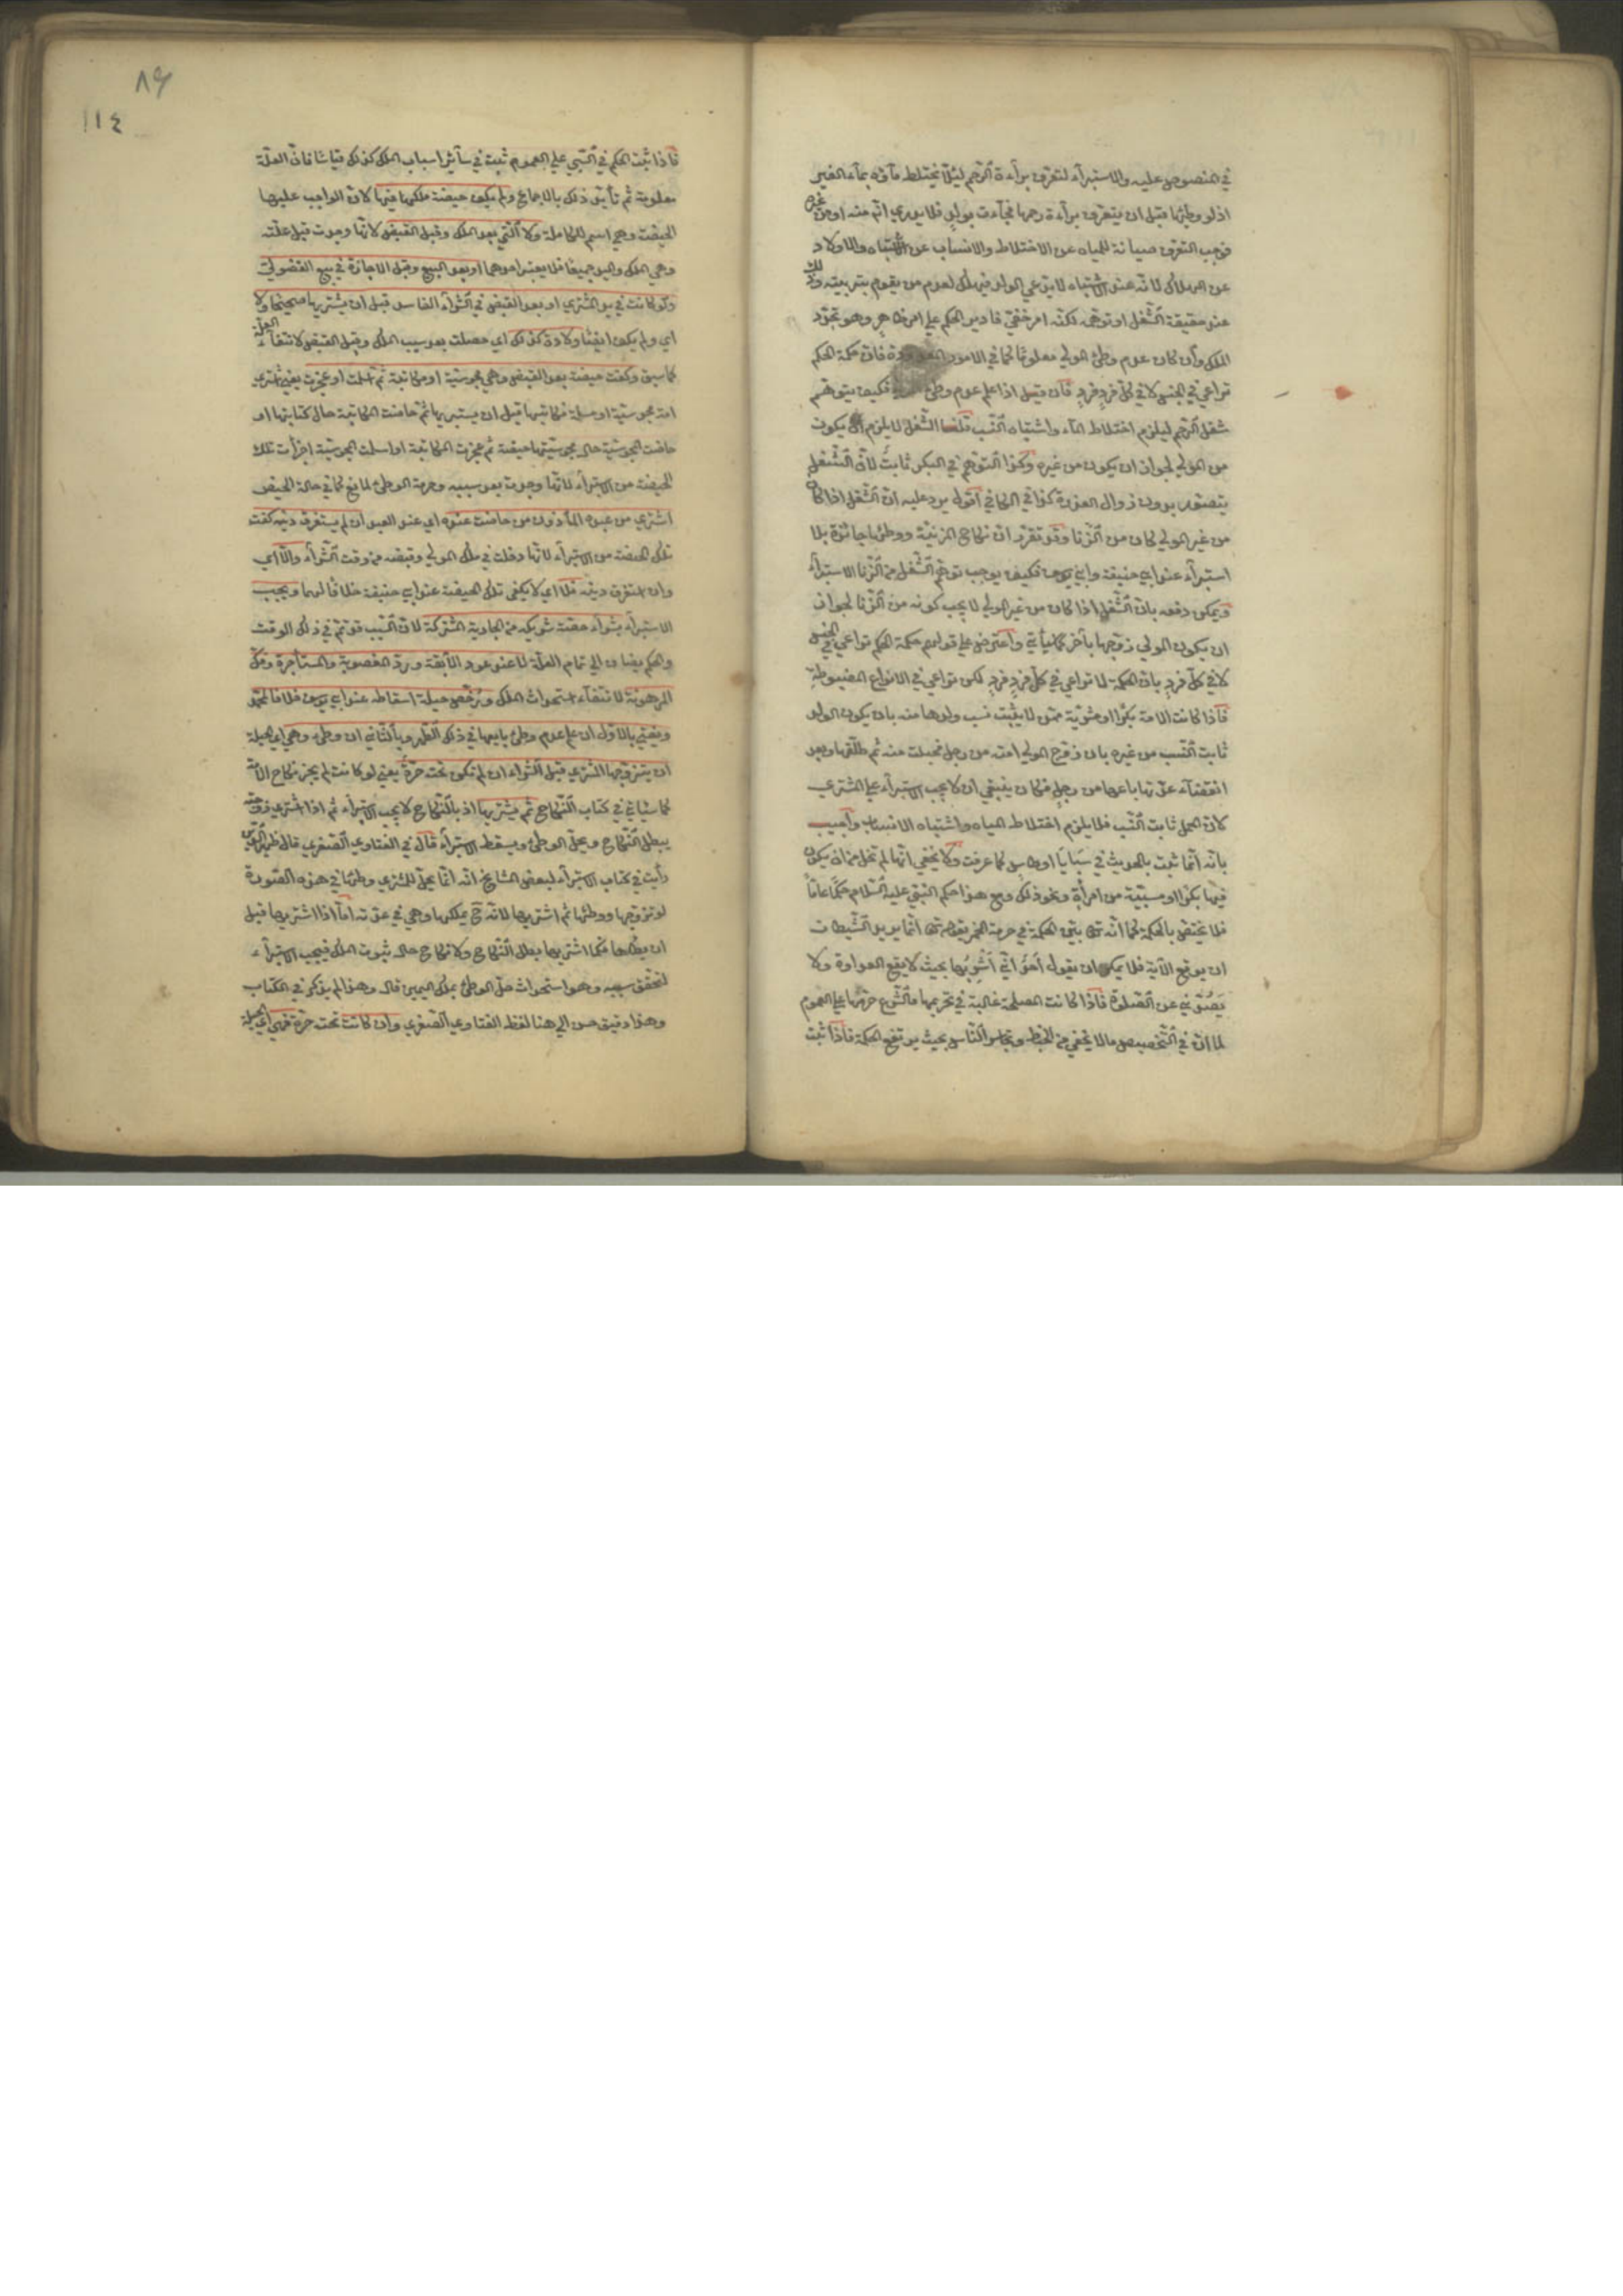 في المنصوص عليه والاستبرآء لتعرف برآءة الرّحم ليئلا يختلط مآؤه بمآء الغير
اذ لو وطئها قبل ان يتعرف برآءة رحمها فجآءت بولدٍ فلا يدري انّه منه او من غيره
فوجب التعرف صيانة للمياه عن الاختلاط والانساب عن الاشتباه والاولاد
عن الهلاك لانّه عند الاشتباه لا يدّعي الولد فيهلك لعدم من يقوم بتربيته وذلك
عند حقيقة الشّغل او توهّمه لكنّه امر خفيّ فادير الحكم على امر ظاهرٍ وهو تجدّد
الملك وان كان عدم وطئ المولي معلومًا كما في الامور المعدودة فانّ حكمة الحكم
تراعي في الجنس لا في كلّ فردٍ فردٍ فان قيل اذا علم عدم وطئ فكيف يتوهّم
شغل الرّحم ليلزم اختلاط المآء واشتباه النّسب قلنا الشّغل لا يلزم ان يكون
من المولي لجواز ان يكون من غيره وكذا التوهّم في البكر ثابتٌ لانّ الشّغل
يتصوّر بدون زوال العذرة كذا في الكافي اقول يرد عليه انّ الشّغل اذا كان
من غير المولي كان من الزّنا وقد تقرّر انّ نكاح المزنيّة ووطئها جائزة بلا
استبرآء عند ابي حنيفة وابي يوسف فكيف يوجب توهّم الشّغل من الزّنا الاستبرآء
ويمكن دفعه بانّ الشّغل اذا كان من غير المولي لا يجب كونه من الزّنا لجواز
ان يكون المولي زوّجها بآخر كما يأتي واعترض على قولهم حكمة الحكم تراعي في الجنس
لا في كلّ فردٍ بانّ الحكمة لا تراعي في كلّ فردٍ فردٍ لكن تراعي في الانواع المضبوطة
فاذا كانت الامة بكرًا او مشريّة ممّن لا يثبت نسب ولدها منه بان يكون الولد
ثابت النّسب من غيره بان زوّج المولي امته من رجل فحبلت منه ثم طلّقها وبعد
انقضآء عدّتها باعها من رجلٍ فكان ينبغي ان لا يجب الاستبرآء على المشتري
لانّ الحمل ثابت النّسب فلا يلزم اختلاط المياه واشتباه الانساب واجيب
بانّه انّما ثبت بالحديث في سَبَايَا اوطاس كما عرفت ولا يخفي انّها لم تخل من ان يكون
فيها بكرًا او مسبيّة من امرأةٍ ونحو ذلك ومع هذا حكم النّبيّ عليه السّلام حكمًا عامًّا
فلا يختصّ بالحكمة كما انّه تع بيّن الحكمة في حرمة الخمر بقوله تع انّما يريد الشّيطان
ان يوقع الآية فلا يمكن ان يقول احدٌ انّي اَشرِبُها بحيث لا يقع العداوة ولا
يَصُدّني عن الصّلوة فاذا كانت المصلحة غالبة في تحريمها فالشّرع حرّمها على العموم
لما انّ في التّخصيص ما لا يخفي من الخبط وتجاسر النّاس بحيث يرتفع الحكمة فاذا ثبت
٨٩
١١٤
فاذا ثبت الحكم في السّبي على العموم ثبت في سآئر اسباب الملك كذلك قياسًا فانّ العلّة
معلومة ثم تأيّد ذلك بالاجماع ولم يكف حيضة ملكها فيها لانّ الواجب عليها
الحيضة وهي اسم للكاملة ولا الّتي بعد الملك وقبل القبض لانّها وجدت قبل علّته
وهي الملك واليد جميعًا فلا يعتبر احدهما او بعد البيع وقبل الاجازة في بيع الفضوليّ
ولو كانت في يد المشتري او بعد القبض في الشّرآء الفاسد قبل ان يشتريها صحيحًا ولا
اي ولم يكف ايضًا ولادة كذلك اي حصلت بعد سبب الملك وقبل القبض لانتفآء العلّة
كما سبق وكفت حيضة بعد القبض وهي مجوسيّة او مكاتبة ثم اسلمت او عجزت يعني اشتري
امة مجوسيّة او مسلمة فكاتبها قبل ان يستبريها ثم حاضت المكاتبة حال كتابتها او
حاضت المجوسيّة حال مجوسيّتها حيضة ثم عجزت المكاتبة او اسلمت المجوسيّة اجزأت تلك
الحيضة من الاستبرآء لانّها وجدت بعد سببه وحرمة الوطئ لمانع كما في حالة الحيض
اشتري من عبده المأذون من حاضت عنده اي عند العبد ان لم يستغرق دينه كفت
تلك الحيضة من الاستبرآء لانّها دخلت في ملك المولي وقبضه من وقت الشّرآء والّا اي
وان استغرق دينه فلا اي لا يكفي تلك الحيضة عند ابي حنيفة خلافًا لهما ويجب
الاستبرآء بشرآء حصّة شريكه من الجارية المشتركة لانّ السّبب قد تمّ في ذلك الوقت
والحكم يضاف الي تمام العلّة لا عند عود الآبقة وردّ المغصوبة والمستأجرة وفكّ
المرهونة لانتفآء استحداث الملك ورُخّص حيلة اسقاطه عند ابي يوسف خلافا لمحمّد
ويفتي بالاوّل ان علم عدم وطئ بايعها في ذلك الطّهر وبالثّاني ان وطئ وهي اي الحيلة
ان يتزوّجها المشتري قبل الشّراء ان لم تكن تحته حرّة يعني لو كانت لم يجز نكاح الامة
كما سيأتي في كتاب النّكاح ثم يشتريها اذ بالنّكاح لا يجب الاستبرآء ثم اذا اشتري زوجته
يبطل النّكاح ويحلّ الوطئ ويسقط الاستبرآء قال في الفتاوي الصّغري قال ظهير الدّين
رأيت في كتاب الاستبرآء لبعض المشايخ انّه انّما يحلّ للمشتري وطئها في هذه الصّورة
لو تزوّجها ووطئها ثم اشتريها لانّه ح يملكها وهي في عدّته امّا اذا اشتريها قبل
ان يطأها فكما اشتريها بطل النّكاح ولا نكاح حال ثبوت الملك فيجب الاستبرآء
لتحقّق سببه وهو استحداث حلّ الوطئ بملك اليمين قال وهذا لم يذكر في الكتاب
وهذا دقيق حسن الي هنا لفظ الفتاوي الصّغري وان كانت تحته حرّة فهي اي الحيلة